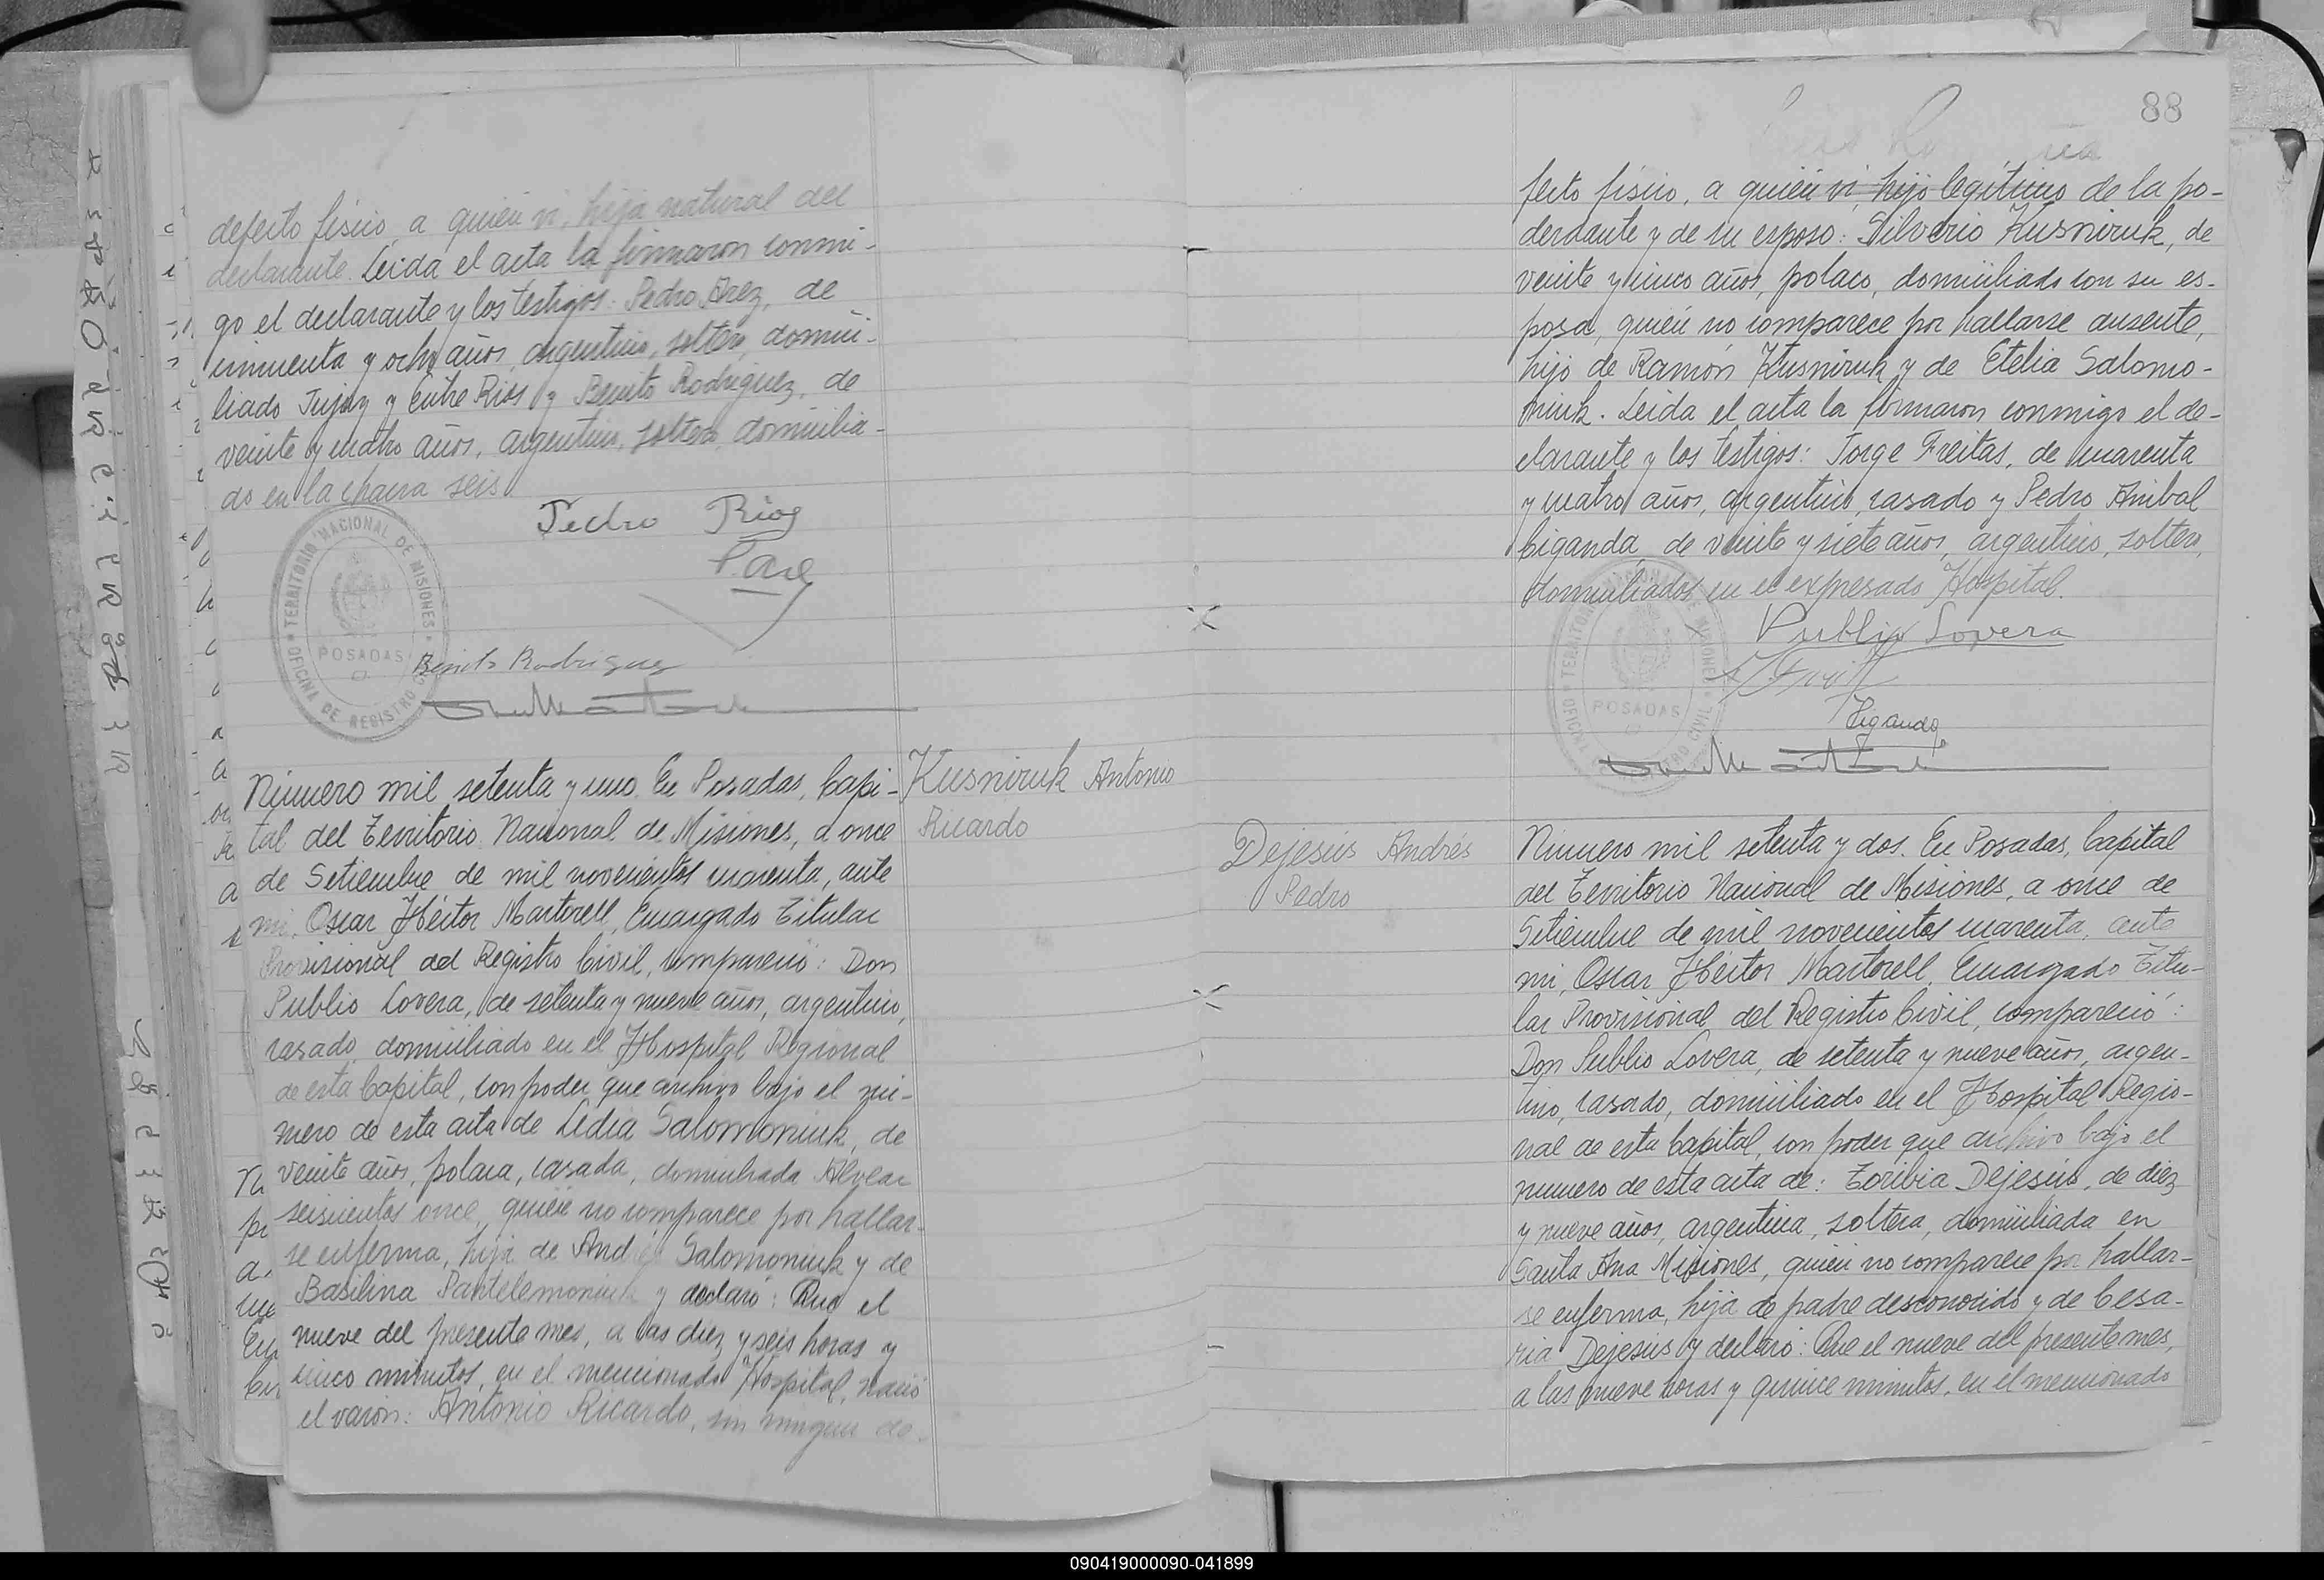 defecto físico, a quien vi, hija natural del
declarante. Leida el acta la firmaron conmi-
go el declarante y los testigos: Pedro Arez, de
cincuenta y ocho años, argentino, soltero, domici-
liado Jujuy y Entre Rios y Benito Rodriguez, de
veinte y cuatro años, argentino, soltero, domicilia-
do en la chacra seis.
Pedro Rios
P. Arez
TERRITORIO NACIONAL DE MISIONES
POSADAS
OFICINA DE REGISTRO CIVIL
Benito Rodriguez
Número mil setenta y uno. En Posadas, Capi-
tal del Territorio Nacional de Misiones, a once
de Setiembre de mil novecientos cuarenta, ante
mi, Oscar Héctor Martorell, Encargado Titular
Provisional del Registro Civil, compareció: Don
Publio Lovera, de setenta y nueve años, argentino,
casado, domiciliado en el Hospital Regional
de esta Capital, con poder que archivo bajo el nú-
mero de esta acta de Lidia Salomoniuk, de
veinte años, polaca, casada, domiciliada Alvear
seiscientos once, quien no comparece por hallar-
se enferma, hija de Andrés Salomoniuk y de
Basilina Pantelemoniuk y declaró: Que el
nueve del presente mes, a las diez y seis horas y
cinco minutos, en el mencionado Hospital, nació
el varón: Antonio Ricardo, sin ningun de-
Kusniruk Antonio
Ricardo
88
fecto físico, a quien vi, hijo legítimo de la po-
derdante y de su esposo: Silverio Kusniruk, de
veinte y cinco años, polaco, domiciliado con su es-
posa, quien no comparece por hallarse ausente,
hijo de Ramón Kusniruk y de Etelia Salomo-
niuk. Leida el acta la firmaron conmigo el de-
clarante y los testigos: Jorge Freitas, de cuarenta
y cuatro años, argentino, casado y Pedro Anibal
Ciganda, de veinte y siete años, argentino, soltero,
domiciliados en el expresado Hospital.
Publio Lovera
POSADAS
Dejesús Andrés
Pedro
Número mil setenta y dos. En Posadas, Capital
del Territorio Nacional de Misiones, a once de
Setiembre de mil novecientos cuarenta, ante
mi, Oscar Héctor Martorell, Encargado Titu-
lar Provisional del Registro Civil, compareció:
Don Publio Lovera, de setenta y nueve años, argen-
tino, casado, domiciliado en el Hospital Regio-
nal de esta Capital, con poder que archivo bajo el
numero de esta acta de: Toribia Dejesús, de diez
y nueve años, argentina, soltera, domiciliada en
Santa Ana Misiones, quien no comparece por hallar-
se enferma, hija de padre desconocido y de Cesa-
ria Dejesús y declaró: Que el nueve del presente mes,
a las nueve horas y quince minutos, en el mencionado
090419000090-041899